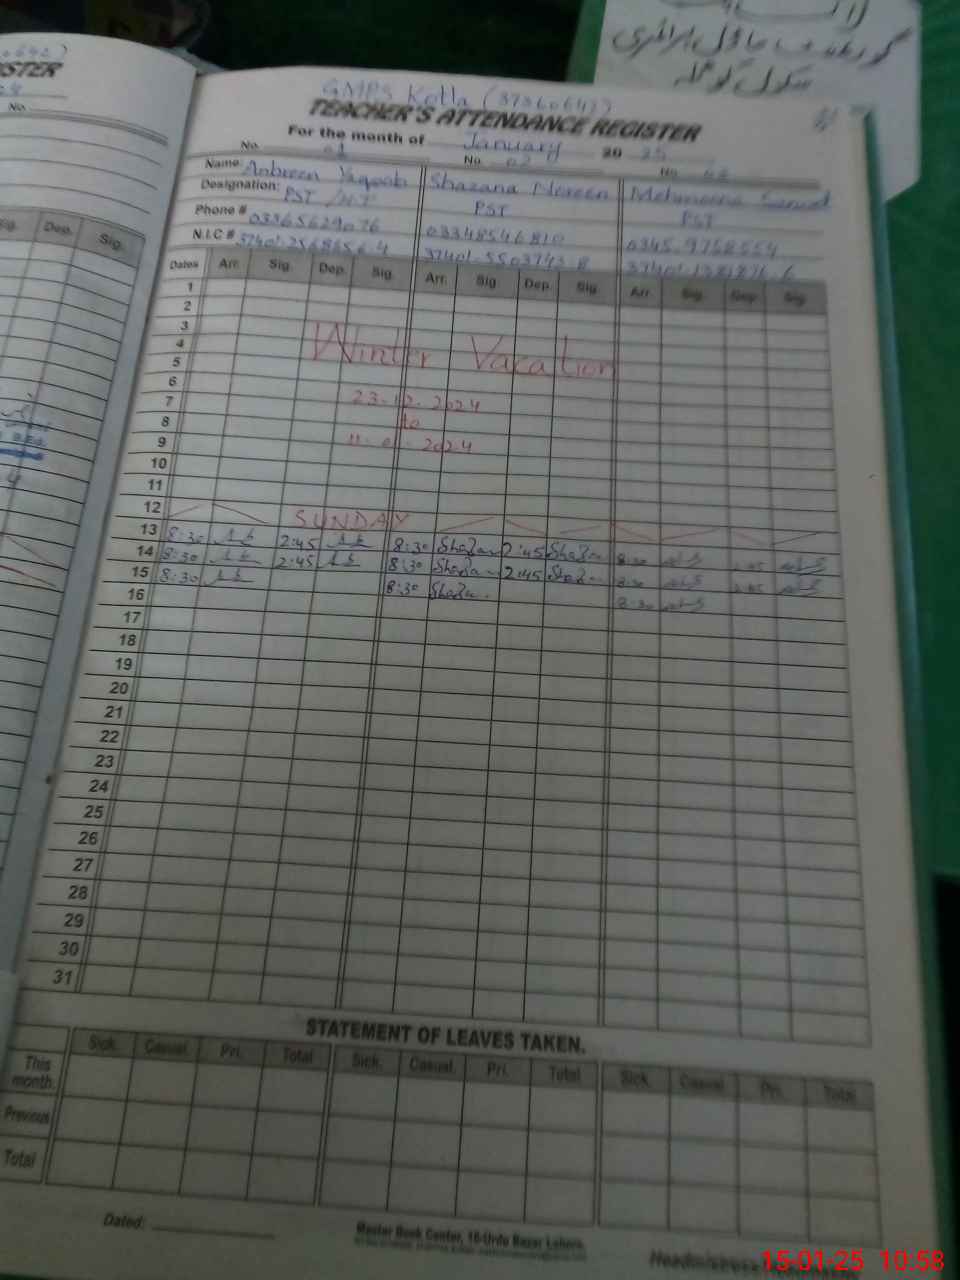 گورنمنٹ ماڈل پرائمری
سکول کوٹلہ
GMPS Kotla (37360642)
TEACHER'S ATTENDANCE REGISTER
For the month of January 20 25
No. 01 No. 02 No.
Name: Anbreen Yaqoob Shazana Noreen
Designation: PST /HT PST PST
Phone # 03365629076 03348546810 0345.9758554
N.I.C # 37401.2568656.4 37401.5503743.8
Dates Arr. Sig. Dep. Sig. Arr. Sig. Dep. Sig. Arr. Sig. Dep. Sig.
1
2
3
4 Winter Vacation
5
6
7 23.12.2024
8 to
9 11.01.2024
10
11
12 SUNDAY
13 8:30 2:45 8:30 Shaza 2:45 Shaza 8:30 2:45
14 8:30 2:45 8:30 Shaza 2:45 Shaza 8:30 2:45
15 8:30 8:30 Shaza 8:30
16
17
18
19
20
21
22
23
24
25
26
27
28
29
30
31
STATEMENT OF LEAVES TAKEN.
Sick. Casual. Pri. Total Sick. Casual. Pri. Total Sick. Casual. Pri. Total
This month.
Previous
Total
Dated:
Master Book Center, 16-Urdu Bazar Lahore.
Headmistress
15-01-25 10:58
ISTER
No.
Sig. Dep. Sig.